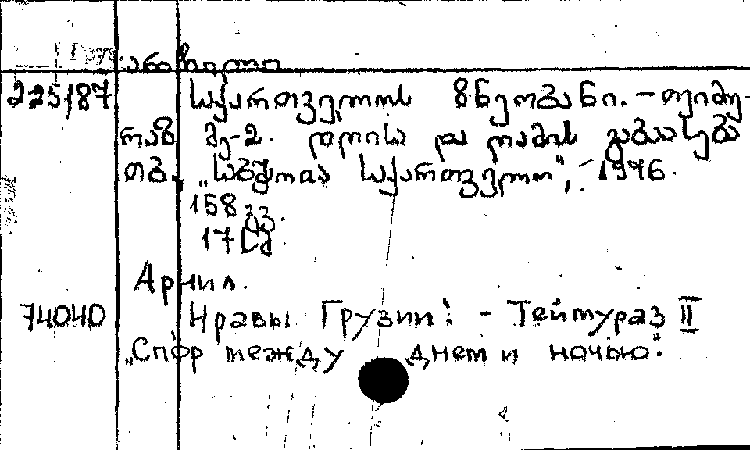 Груз
არჩილი
225187 საქართველოს ზნეობანი. - თეიმუ-
რაზ მე-2. დღისა და ღამის გაბაასება
თბ., „საბჭოთა საქართველო", 1976.
158 გვ.
17 სმ
Арчил.
74040 Нравы Грузии: - Теймураз II
„Спор между днем и ночью".